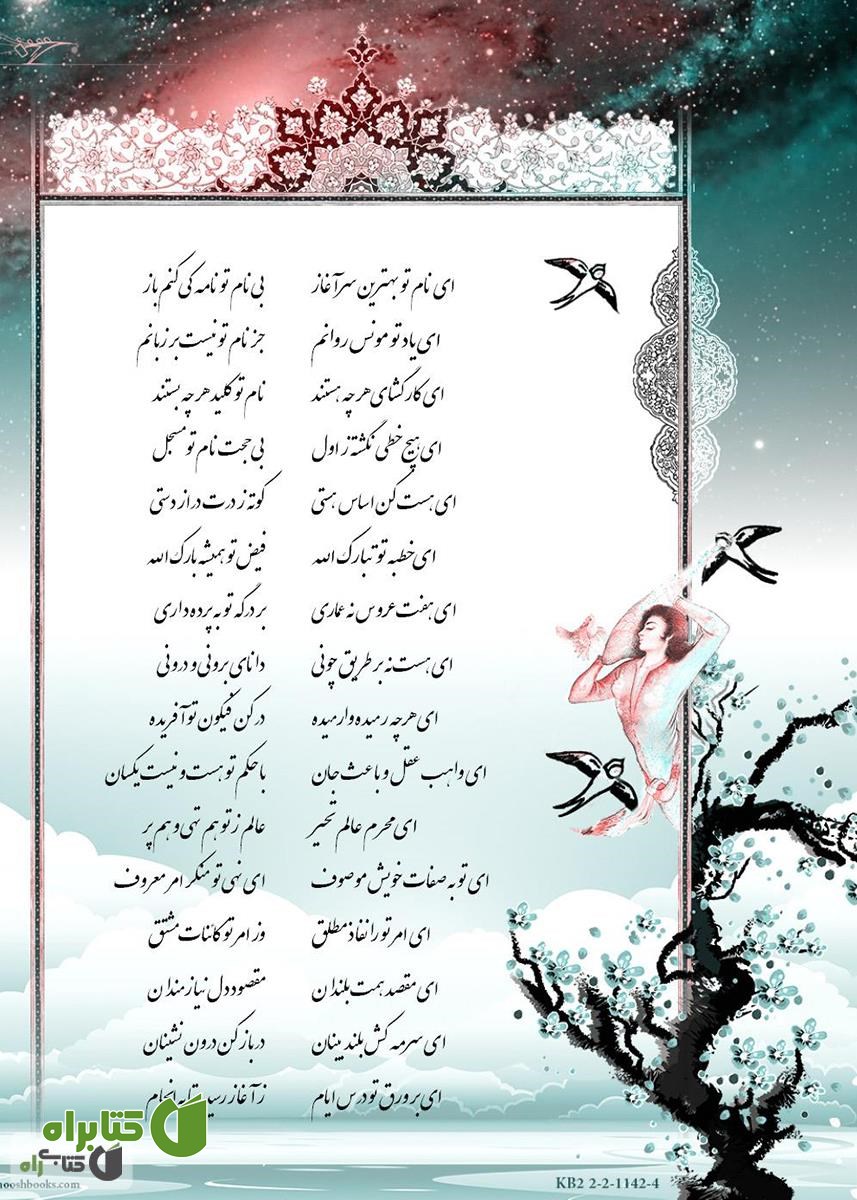 ای نام تو بهترین سرآغاز بی نام تو نامه کی کنم باز
ای یاد تو مونس روانم جز نام تو نیست بر زبانم
ای کارگشای هر چه هستند نام تو کلید هر چه بستند
ای هیچ خطی نگشته ز اول بی حجت نام تو مسجل
ای هست کن اساس هستی کوته ز درت دراز دستی
ای خطبه تو تبارک الله فیض تو همیشه بارک الله
ای هفت عروس نه عماری بر درگه تو به پرده داری
ای هست نه بر طریق چونی دانای برونی و درونی
ای هرچه رمیده وارمیده در کن فیکون تو آفریده
ای واهب عقل و باعث جان با حکم تو هست و نیست یکسان
ای محرم عالم تحیر عالم ز تو هم تهی و هم پر
ای تو به صفات خویش موصوف ای نهی تو منکر امر معروف
ای امر تو را نفاذ مطلق وز امر تو کائنات مشتق
ای مقصد همت بلندان مقصود دل نیازمندان
ای سرمه کش بلند بینان در باز کن درون نشینان
ای بر ورق تو درس ایام ز آغاز رسیده تا به انجام
کتابراه
کتابی راه
nooshbooks.com
KB2 2-2-1142-4